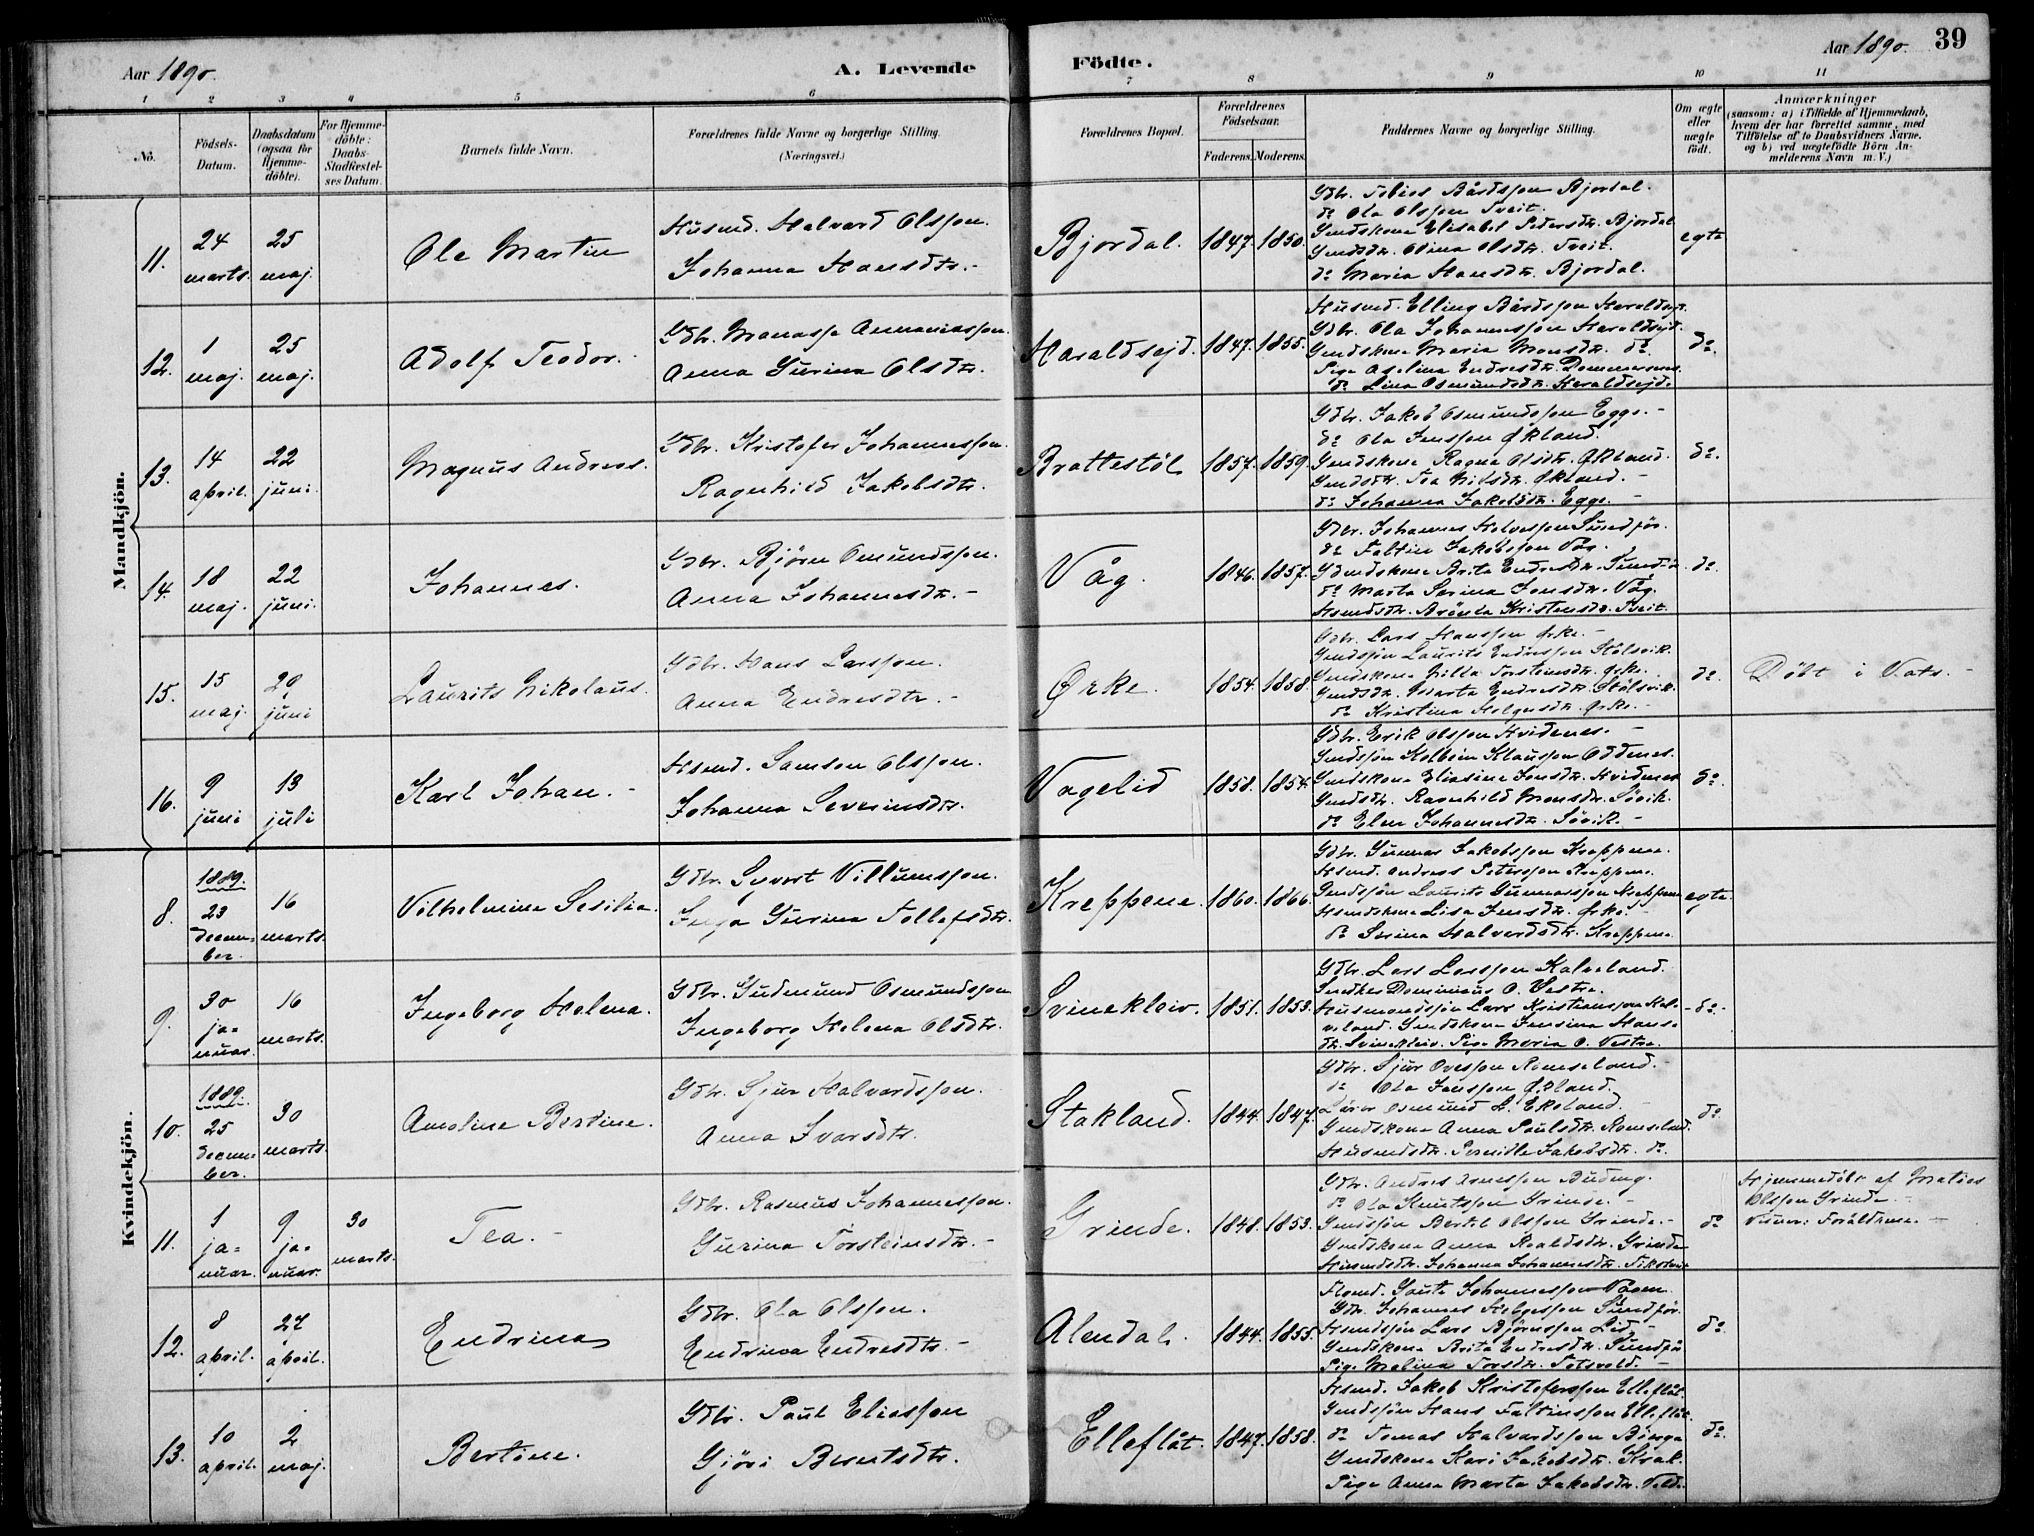 Aar 1890. A. Levende Födte. Aar 1890. 39
1 2 3 4 5 6 7 8 9 10 11
No.
Födsels-Datum.
Daabsdatum (ogsaa for Hjemme-döbte).
For Hjemme-döbte: Daabs-Stadfæstel-ses Datum.
Barnets fulde Navn.
Forældrenes fulde Navne og borgerlige Stilling.
(Næringsvei.)
Forældrenes Bopæl.
Forældrenes Födselsaar.
Faderens. Moderens.
Faddernes Navne og borgerlige Stilling.
Om ægte eller uægte födt.
Anmærkninger
(saasom: a) i Tilfælde af Hjemmedaab, hvem der har forrettet samme, med Tilföielse af to Daabsvidners Navne, og b) ved uægtefödte Börn Anmelderens Navn m. V.)
Mandkjön.
11. 24 marts. 25 maj. Ole Martin
Husmd. Halvard Olsson.
Johanna Hansdtr.
Bjordal. 1847. 1850.
Gdbr. Tobias Bårdsson Bjordal.
do Ola Olsson Tveit.
Gmdskone Elisabet Petersdtr. Bjordal
Gmdsdtr. Olina Olsdtr. Tveit.
do Maria Hansdtr. Bjordal.
egte
12. 1 maj. 25 maj. Adolf Teodor.
Gdbr. Manasse Annaniasson.
Anna Gurina Olsdtr.
Haraldsejd. 1847. 1855.
Husmd. Elling Bårdsson Haraldsejd.
Gdbr. Ola Johannesson Haraldsejd.
Gmdskone Maria Monsdtr. do.
Pige Aselina Endresdtr.
do Lina Osmundsdtr. Haraldsejd.
do.
13. 14 april. 22 juni. Magnus Andreas.
Gdbr. Kristofer Johannesson.
Ragnhild Jakobsdtr.
Brattestöl 1857. 1859.
Gdbr. Jakob Osmundsson Egge.
do Ola Jensson Økland.
Gmdskone Ragna Olsdtr. Økland.
Gmdsdtr. Tea Nilsdtr. Økland.
do Johanna Jakobsdtr. Egge.
do.
14. 18 maj. 22 juni. Johannes.
Gdbr. Björn Omundsson.
Anna Johannesdtr.
Våg. 1846. 1857.
Gdbr. Johannes Helgesson Sundför.
do Faltin Jakobsson Våg.
Gmdskone Brita Endresdtr. Sundför
do Marta Serina Jensdtr. Våg.
Hsmdsdtr. Brönla Kristensdtr. Tveit.
do.
15. 15 maj. 29 juni Laurits Nikolaus.
Gdbr. Hans Larsson.
Anna Endresdtr.
Ørke. 1854. 1858.
Gdbr. Lars Hansson Ørke.
Gmdssön Laurits Endresson Stölsvik.
Gmdskone Gilla Torsteinsdtr. Ørke.
Gmdsdtr. Marta Endresdtr. Stölsvik.
do Kristina Helgesdtr. Ørke.
do. Döbt i Vats.
16. 9 juni 13 juli Karl Johan.
Hsmd. Samson Olsson.
Johanna Severinsdtr.
Vågelid 1858. 1854.
Gdbr. Erik Olsson Hvidenes.
Gmdssön Kolbein Klausson Oddenes.
Gmdskone Eliasine Jensdtr. Hvidenes
Gmdsdtr. Ragnhild Monsdtr. Sövik.
do Elen Johannesdtr. Sövik.
do.
Kvindekjön.
8. 1889. 23 decem-ber. 16 marts. Vilhelmine Sesilie.
Gdbr. Syvert Villumsson.
Inga Gurina Tollefsdtr.
Kreppene. 1860. 1866.
Gdbr. Gunnar Jakobsson Kreppene.
Hsmd. Andreas Petersson Kreppene.
Gmdssön Laurits Gunnarsson Kreppene
Hsmdskone Lisa Jensdtr. Ørke.
do Serina Halvardsdtr. Kreppene.
egte
9. 30 ja-nuar. 16 marts. Ingeborg Helena.
Gdbr. Gudmund Osmundsson
Ingeborg Helena Olsdtr.
Svinekleiv. 1851. 1853.
Gdbr. Lars Larsson Kalveland.
Snedker Dominicus O. Vestre.
Husmandssön Lars Kristiansson Kal-
veland. Gmdskone Jensina Hans-
dtr. Svinekleiv. Pige Maria O. Vestre.
do.
10. 1889. 25 decem-ber. 30 marts. Amoline Bertine.
Gdbr. Sjur Halvardsson.
Anna Ivarsdtr.
Stakland. 1844. 1847.
Gdbr. Sjur Ovesson Romseland.
do Ola Jensson Økland.
Lærer Osmund L. Ekeland.
Gmdskone Anna Paulsdtr. Romseland.
Husmdsdtr. Pernille Jakobsdtr. do.
do
11. 1 ja-nuar. 9 ja-nuar. 30 marts. Tea.
Gdbr. Rasmus Johannesson.
Gurina Torsteinsdtr.
Grinde. 1848. 1853.
Gdbr. Andres Arnesson Buding.
do Ola Knutsson Grinde.
Gmdssön Bertel Olsson Grinde.
Gmdskone Anna Roaldsdtr. Grinde
Husmdsdtr. Johanna Johannesdtr.
do Hjemmedöbt af Matias
Olsson Grinde.
Vidner: Foräldrene.
12. 8 april. 27 april. Endrina
Gdbr. Ola Olsson.
Endrina Endresdtr.
Alendal. 1844. 1855.
Hsmd. Gaute Johannesson Vågen.
Gdbr. Johannes Helgesson Sundför.
Hsmdssön Lars Björnsson Lid.
Gmdskone Brita Endresdtr. Sundför
Pige Malina Torsdtr.
do.
13. 10 april. 2 maj. Bertine.
Gdbr. Paul Eliasson
Gjöri Berntsdtr.
Elleflåt. 1847. 1858.
Hsmd. Jakob Kristofersson Elleflåt.
Gmdssön Hans Faltinsson Elleflåt.
do Tomas Halvardsson Börge
Gmdskone Kari Jakobsdtr.
Pige Anna Marta Jakobsdtr.
do.